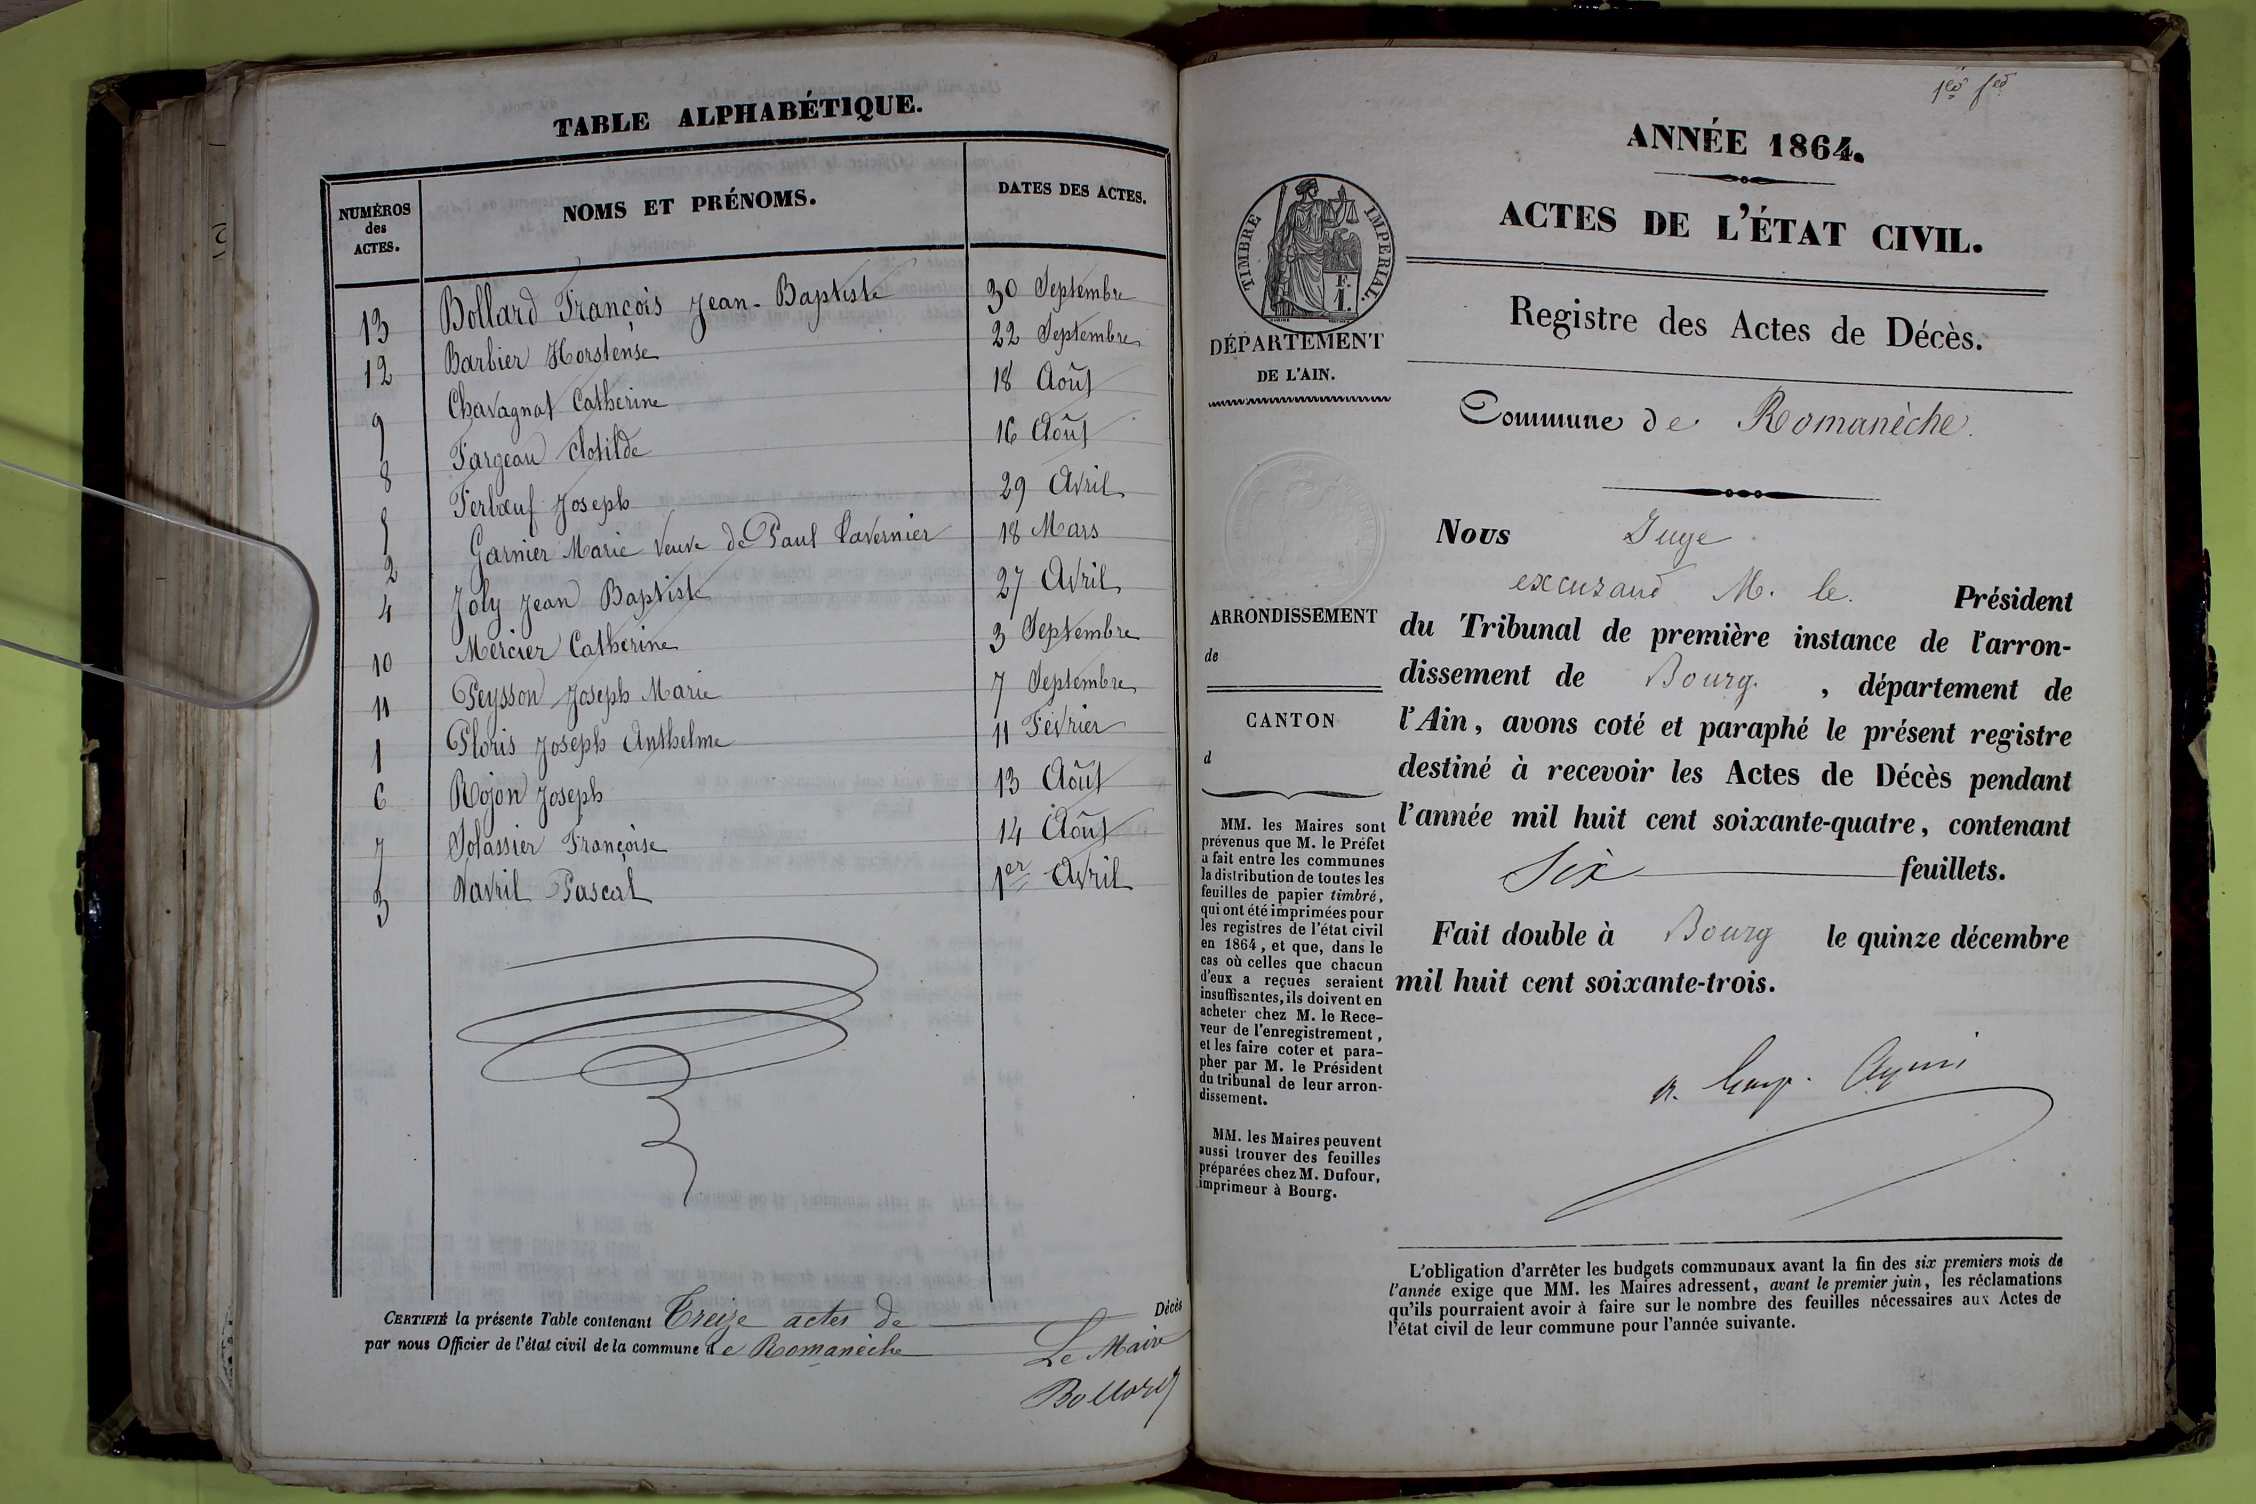 TABLE ALPHABÉTIQUE.
NUMÉROS des ACTES. NOMS ET PRÉNOMS. DATES DES ACTES.
13 Bollard François Jean-Baptiste 30 Septembre
12 Barbier Horstense 22 Septembre
9 Chavagnat Catherine 18 Août
8 Fargeau Clotilde 16 Août
5 Ferlœuf Joseph 29 Avril
2 Garnier Marie Veuve de Paul Tavernier 18 Mars
4 Joly Jean Baptiste 27 Avril
10 Mercier Catherine 3 Septembre
11 Peysson Joseph Marie 7 Septembre
1 Ploris Joseph Anthelme 11 Février
6 Rojon Joseph 13 Août
7 Solassier Françoise 14 Août
3 Navril Pascal 1er Avril
CERTIFIÉ la présente Table contenant Treize actes de Décès
par nous Officier de l'état civil de la commune de Romanèche
Le Maire
Bollard
ANNÉE 1864.
ACTES DE L'ÉTAT CIVIL.
TIMBRE IMPERIAL.
F.
1.
DÉPARTEMENT
DE L'AIN.
ARRONDISSEMENT
de
CANTON
d
MM. les Maires sont
prévenus que M. le Préfet
a fait entre les communes
la distribution de toutes les
feuilles de papier timbré,
qui ont été imprimées pour
les registres de l'état civil
en 1864, et que, dans le
cas où celles que chacun
d'eux a reçues seraient
insuffisantes, ils doivent en
acheter chez M. le Rece-
veur de l'enregistrement,
et les faire coter et para-
pher par M. le Président
du tribunal de leur arron-
dissement.
MM. les Maires peuvent
aussi trouver des feuilles
préparées chez M. Dufour,
imprimeur à Bourg.
Registre des Actes de Décès.
Commune de Romanèche.
Nous Juge
excusant M. le Président
du Tribunal de première instance de l'arron-
dissement de Bourg, département de
l'Ain, avons coté et paraphé le présent registre
destiné à recevoir les Actes de Décès pendant
l'année mil huit cent soixante-quatre, contenant
Six feuillets.
Fait double à Bourg le quinze décembre
mil huit cent soixante-trois.
L'obligation d'arrêter les budgets communaux avant la fin des six premiers mois de
l'année exige que MM. les Maires adressent, avant le premier juin, les réclamations
qu'ils pourraient avoir à faire sur le nombre des feuilles nécessaires aux Actes de
l'état civil de leur commune pour l'année suivante.